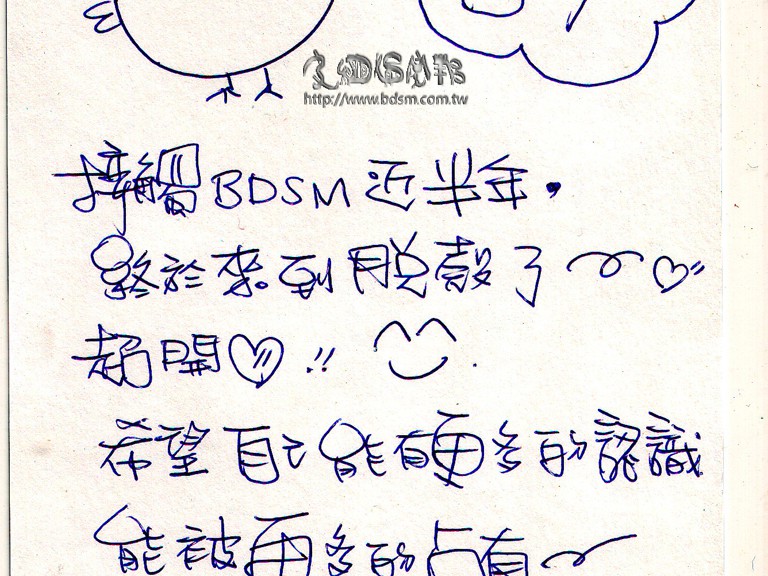 皮繩愉虐邦
http://www.bdsm.com.tw
接觸BDSM近半年,
終於來到脫殼了～♡"
超開♡!!
希望自己能有更多的認識
能被更多的占有～